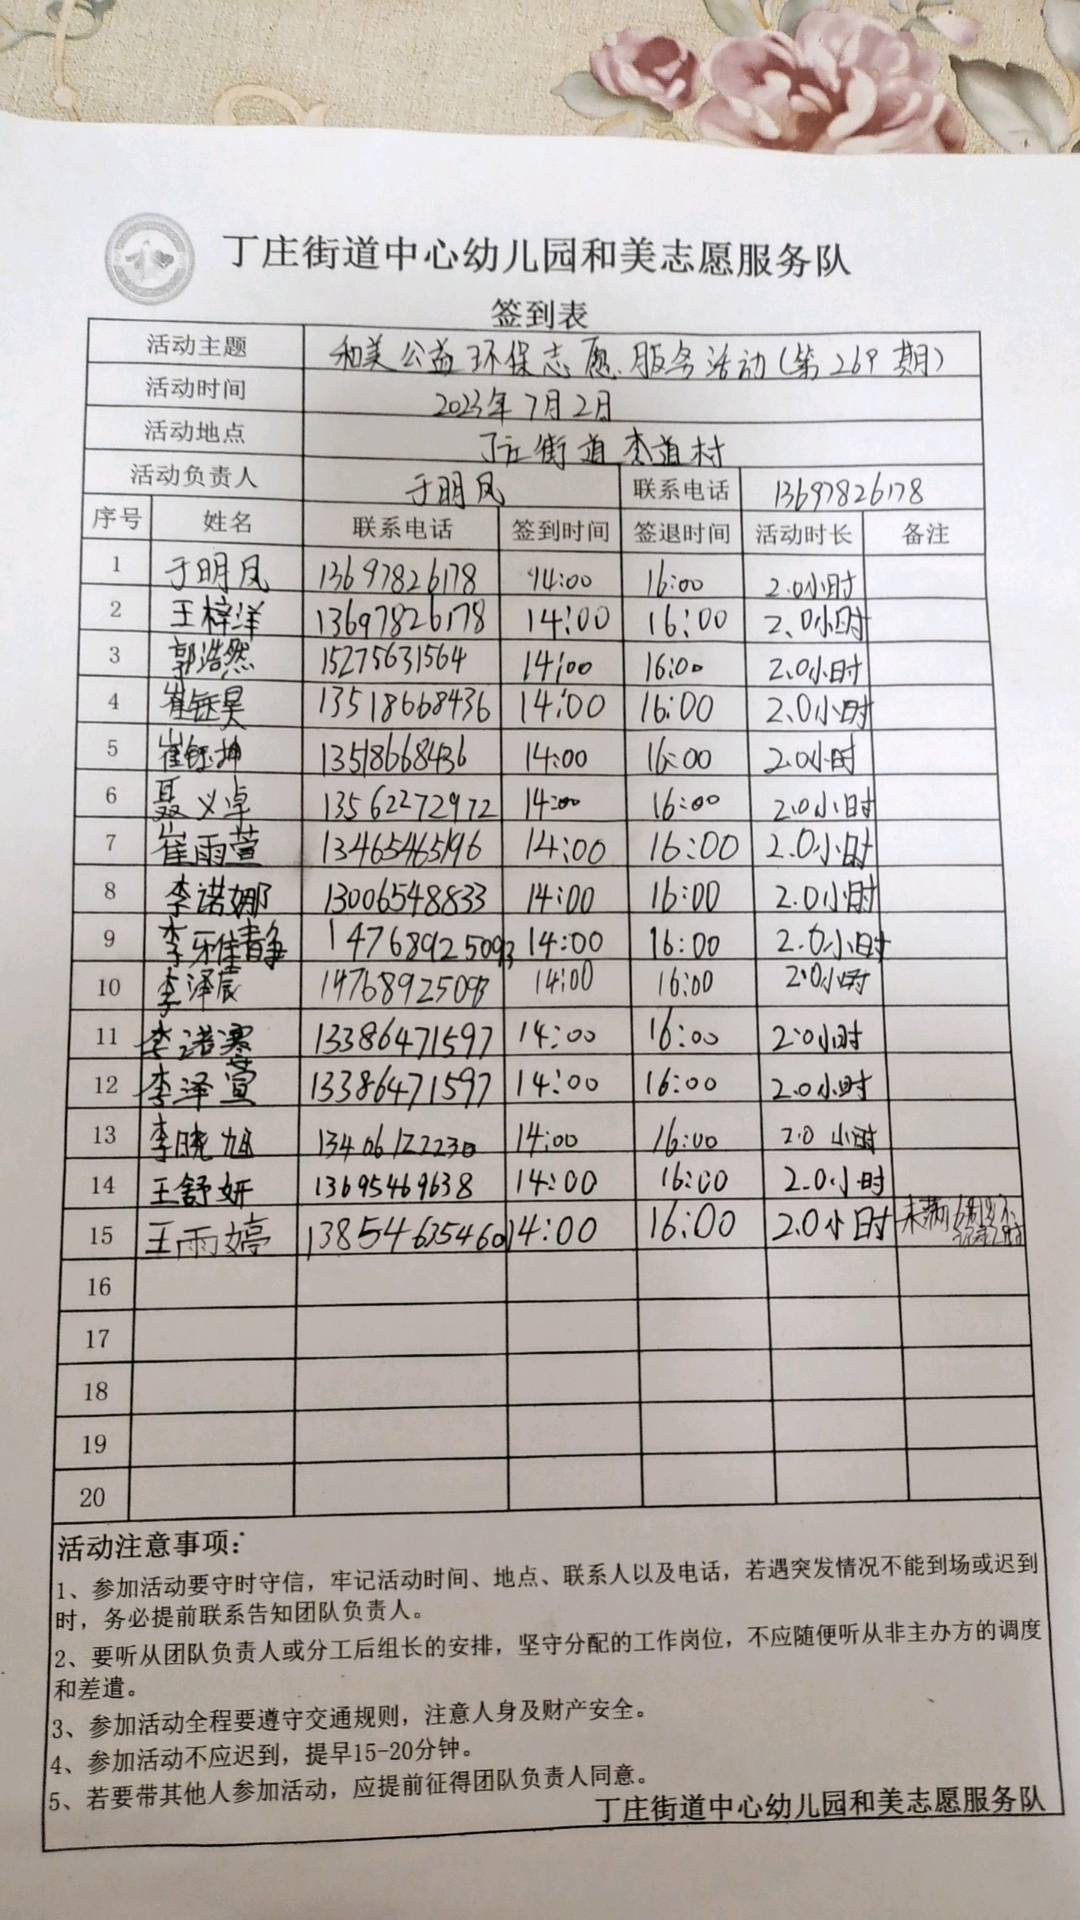 丁庄街道中心幼儿园和美志愿服务队
签到表
活动主题 和美公益环保志愿服务活动(第269期)
活动时间 2023年7月2日
活动地点 丁庄街道李道村
活动负责人 于明凤 联系电话 13697826178
序号 姓名 联系电话 签到时间 签退时间 活动时长 备注
1 于明凤 13697826178 14:00 16:00 2.0小时
2 王梓洋 13697826178 14:00 16:00 2.0小时
3 郭浩然 15275631564 14:00 16:00 2.0小时
4 崔钰昊 13518668436 14:00 16:00 2.0小时
5 崔钰坤 13518668436 14:00 16:00 2.0小时
6 聂义卓 13562272972 14:00 16:00 2.0小时
7 崔雨萱 13465465196 14:00 16:00 2.0小时
8 李诺娜 13006548833 14:00 16:00 2.0小时
9 李雅静 14768925093 14:00 16:00 2.0小时
10 李泽辰 14768925093 14:00 16:00 2.0小时
11 李诺寒 13386471597 14:00 16:00 2.0小时
12 李泽萱 13386471597 14:00 16:00 2.0小时
13 李晓旭 13406122230 14:00 16:00 2.0小时
14 王舒妍 13695469638 14:00 16:00 2.0小时
15 王雨婷 13854635460 14:00 16:00 2.0小时 未满6周岁不
16
17
18
19
20
活动注意事项:
1、参加活动要守时守信，牢记活动时间、地点、联系人以及电话，若遇突发情况不能到场或迟到
时，务必提前联系告知团队负责人。
2、要听从团队负责人或分工后组长的安排，坚守分配的工作岗位，不应随便听从非主办方的调度
和差遣。
3、参加活动全程要遵守交通规则，注意人身及财产安全。
4、参加活动不应迟到，提早15-20分钟。
5、若要带其他人参加活动，应提前征得团队负责人同意。
丁庄街道中心幼儿园和美志愿服务队